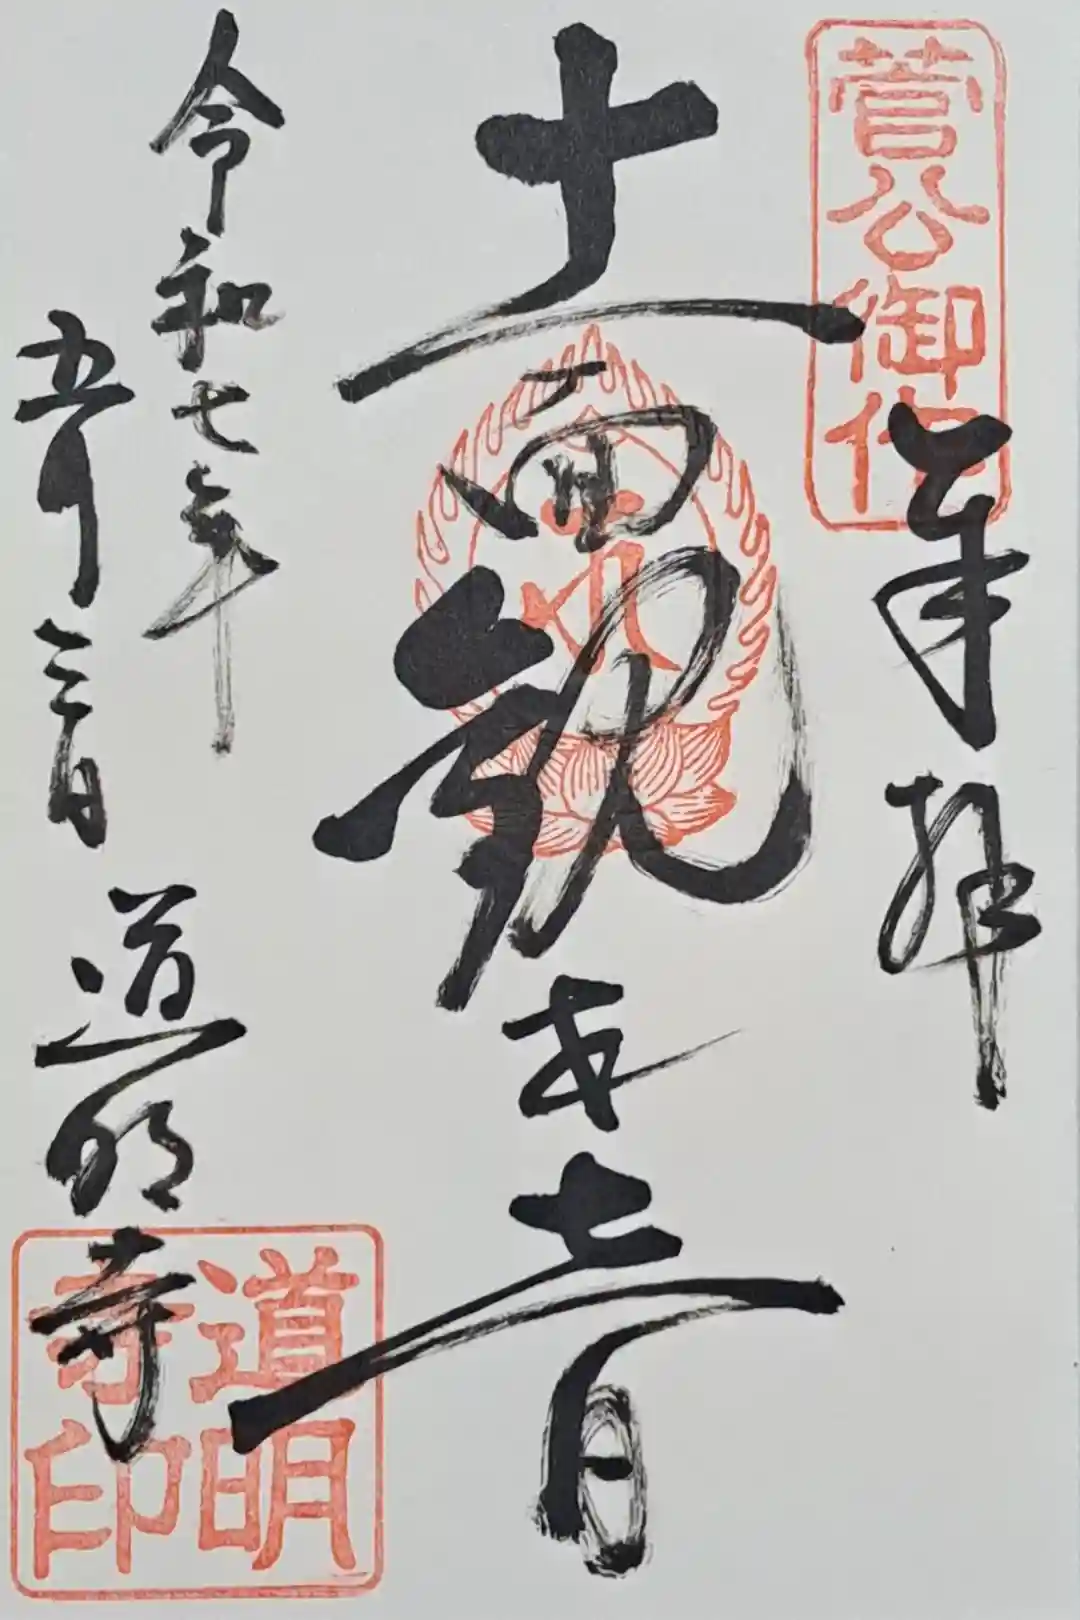 菅公御作
奉拝
十一面観世音
令和七年
五月三日
道明寺
道明
寺印